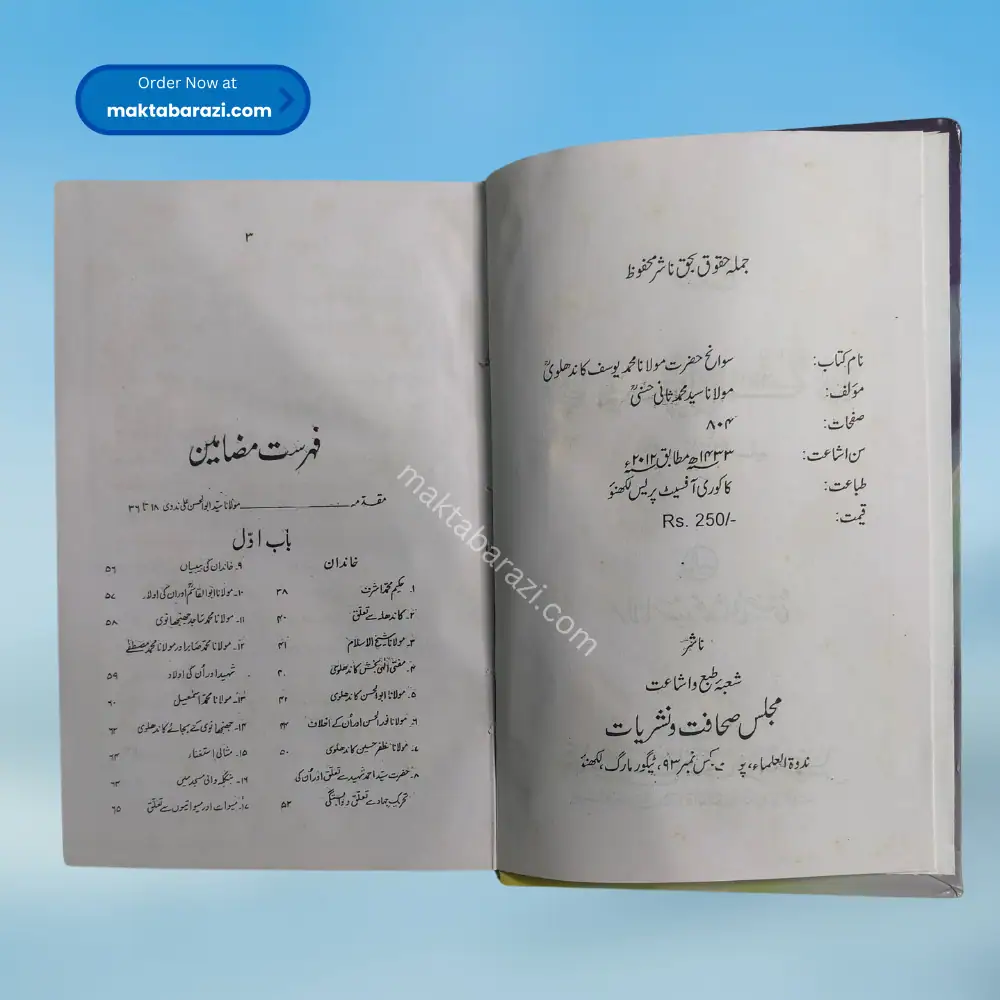 Order Now at
maktabarazi.com
جملہ حقوق بحق ناشر محفوظ
نام کتاب: سوانح حضرت مولانا محمد یوسف کاندھلویؒ
مؤلف: مولانا سید محمد ثانی حسنیؒ
صفحات: ۸۰۴
سن اشاعت: ۱۴۳۳ھ مطابق ۲۰۱۲ء
طباعت: کاکوری آفسیٹ پریس لکھنؤ
قیمت: Rs. 250/-
ناشر
شعبۂ طبع و اشاعت
مجلس صحافت و نشریات
ندوۃ العلماء، پوسٹ بکس نمبر ۹۳، ٹیگور مارگ، لکھنؤ
۳
فہرست مضامین
مقدمہ مولانا سید ابوالحسن علی ندوی ۱۸ تا ۳۶
باب اوّل
خاندان
۱۔ حکیم محمد اشرف ۳۸
۲۔ کاندھلہ سے تعلق ۴۰
۳۔ مولانا شیخ الاسلام ۴۱
۴۔ مفتی الٰہی بخش کاندھلوی
۵۔ مولانا ابوالحسن کاندھلوی ۴۲
۶۔ مولانا نورالحسن اور ان کے اخلاف ۴۴
۷۔ مولانا مظفر حسین کاندھلوی ۵۰
۸۔ حضرت سید احمد شہید سے تعلق اور ان کی
تحریک جہاد سے تعلق و وابستگی ۵۲
۹۔ خاندان کی بیبیاں ۵۶
۱۰۔ مولانا ابوالقاسم اور ان کی اولاد ۵۷
۱۱۔ مولانا محمد ساجد جھنجھانوی ۵۸
۱۲۔ مولانا محمد صابر اور مولانا محمد مصطفےٰ
شہید اور اُن کی اولاد ۵۹
۱۳۔ مولانا محمد اسمٰعیل ۶۰
۱۴۔ جھنجھانوی کے بجائے کاندھلوی
۱۵۔ مثالی استغناء
۱۶۔ بنگلہ والی مسجد میں ۶۳
۱۷۔ میوات اور میواتیوں سے تعلق ۶۵
maktabarazi.com